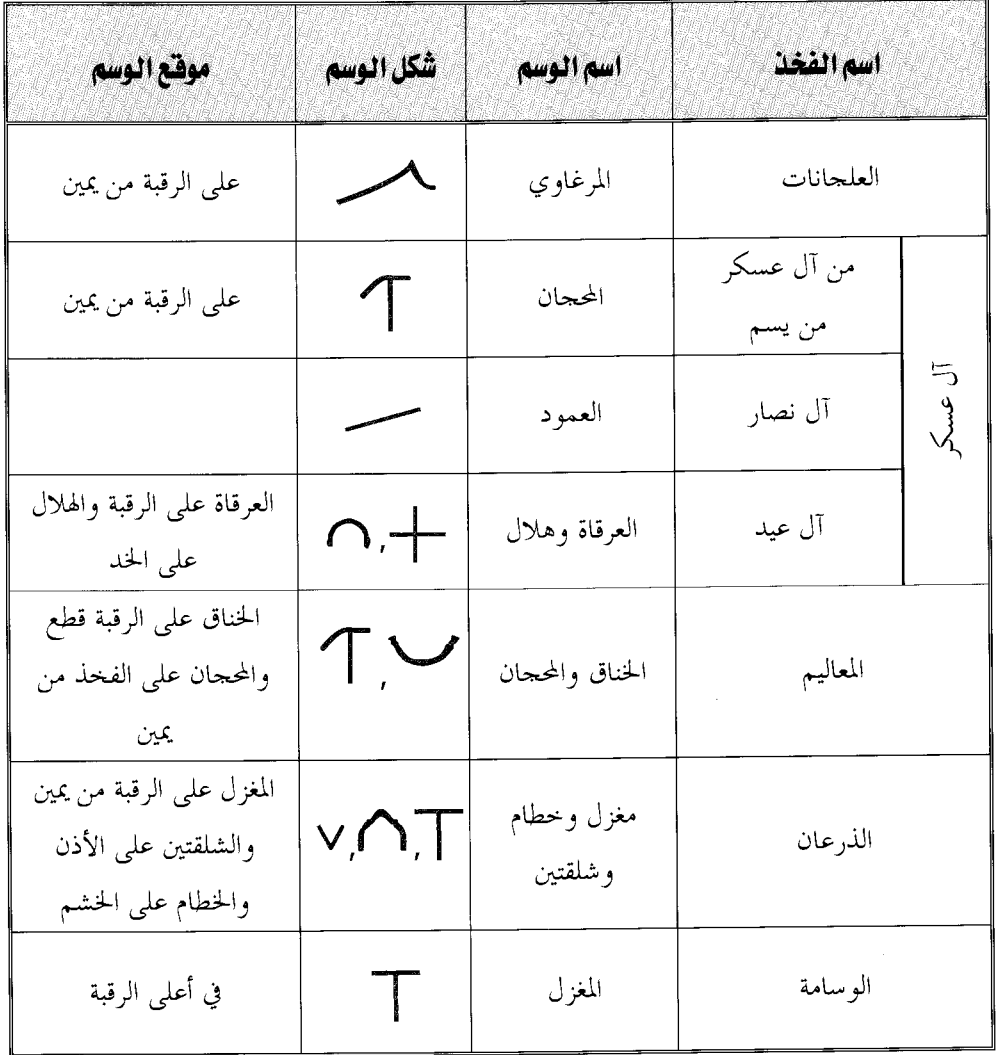 اسم الفخذ	اسم الوسم	شكل الوسم	موقع الوسم
العلجانات	المرغاوي	على الرقبة من يمين
آل عسكر
من آل عسكر
من يسم
المحجان	على الرقبة من يمين
آل نصار	العمود
آل عيد	العرقاة وهلال
العرقاة على الرقبة والهلال
على الخد
المعاليم	الخناق والمحجان
الخناق على الرقبة قطع
والمحجان على الفخذ من
يمين
الذرعان
مغزل وخطام
وشلقتين
المغزل على الرقبة من يمين
والشلقتين على الأذن
والخطام على الخشم
الوسامة	المغزل	في أعلى الرقبة